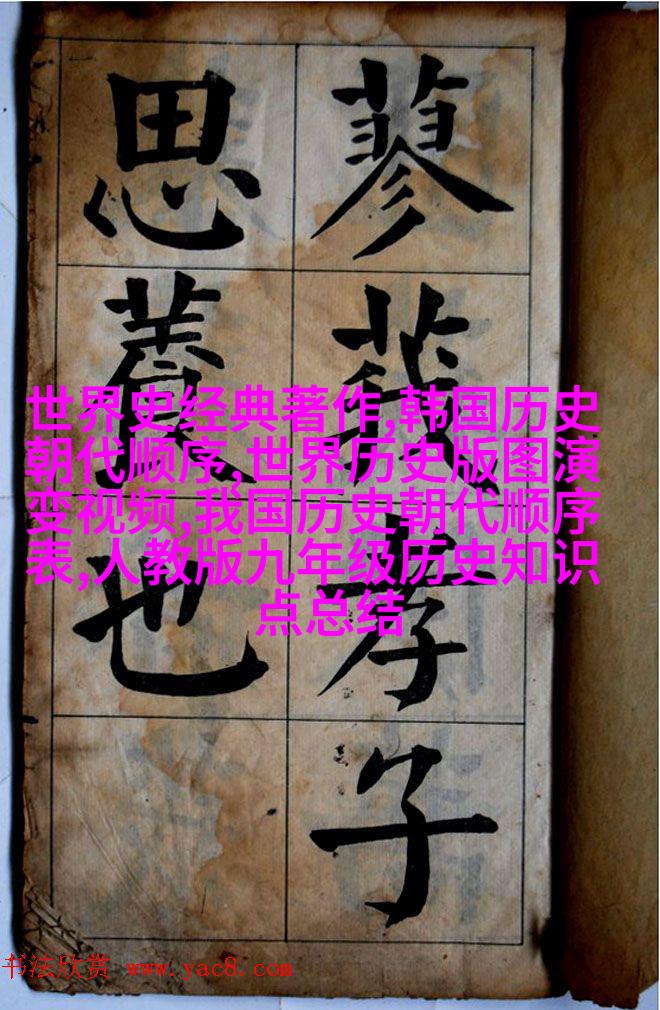 蓼莪孝子
思養也
世界史经典著作,韩国历史
朝代顺序,世界历史版图演
变视频,我国历史朝代顺序
表,人教版九年级历史知识
点总结
书法欣赏 www.yac8.com